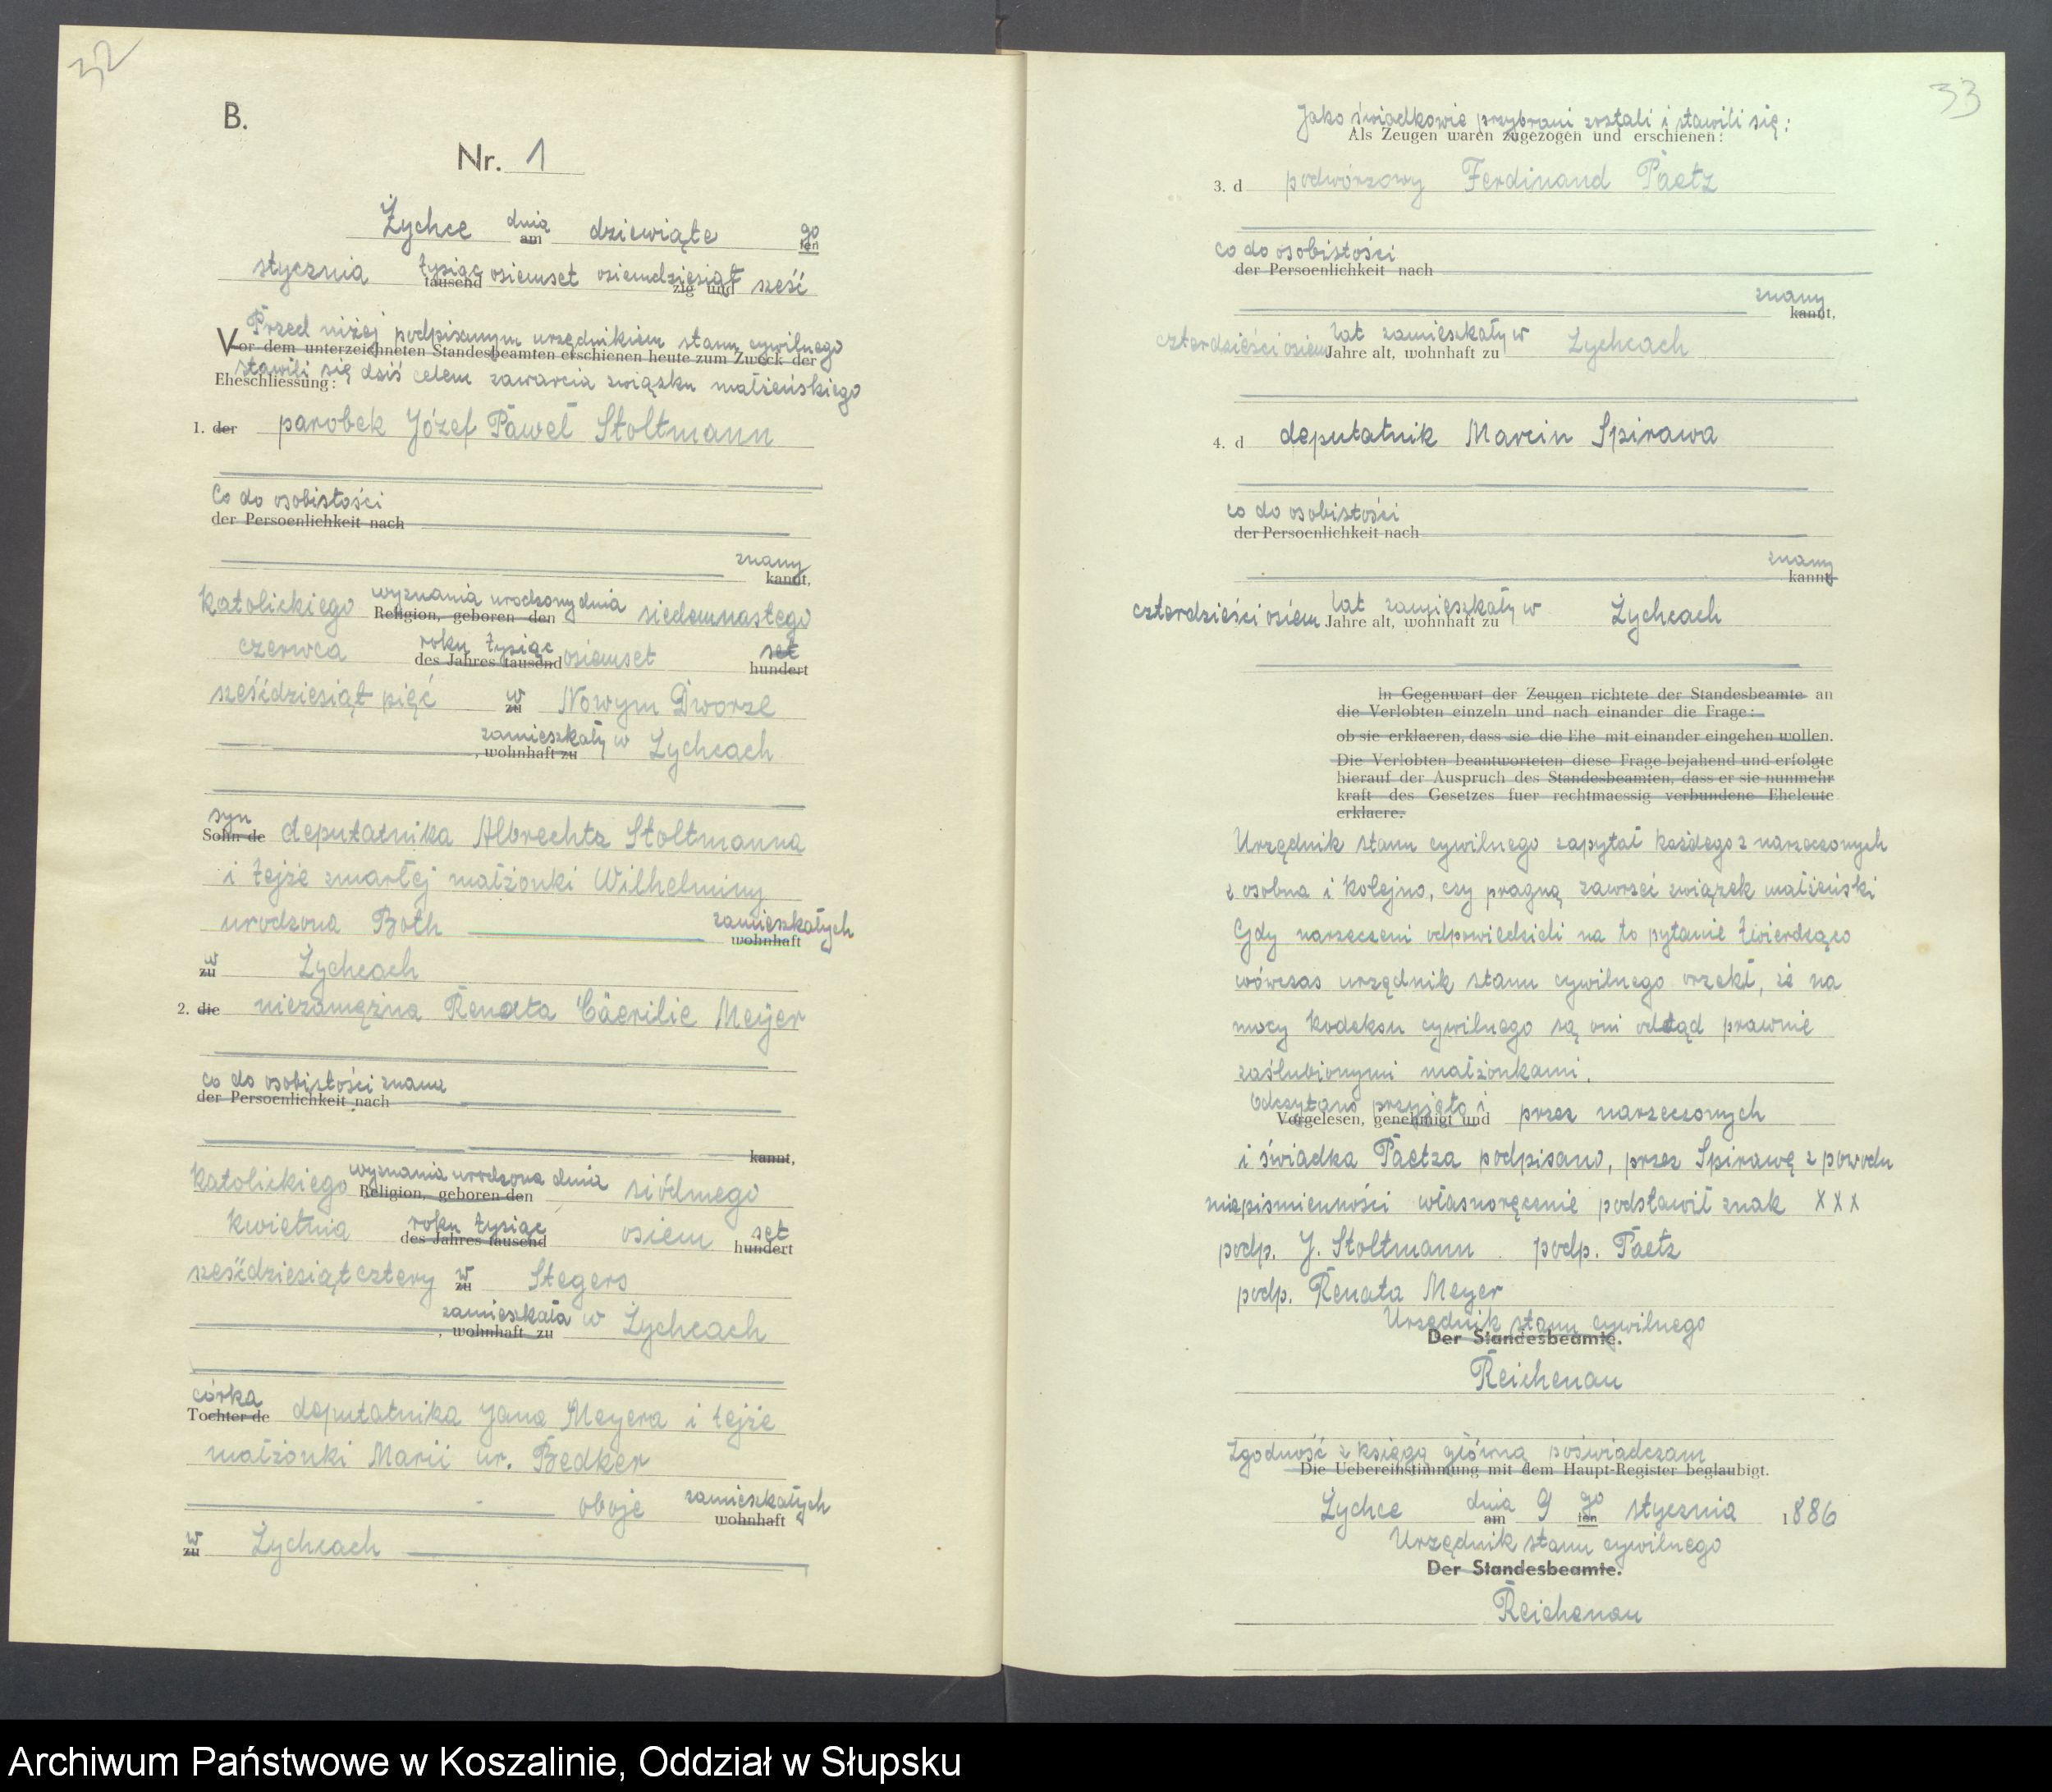 32
B.
Nr. 1
Żychce dnia am dziewiąte go ten
stycznia tysiąc tausend osiemset osiemdziesiąt zig und sześć
Przed niżej podpisanym urzędnikiem stanu cywilnego
Vor dem unterzeichneten Standesbeamten erschienen heute zum Zweck der
stawili się dziś celem zawarcia związku małżeńskiego
Eheschliessung:
1. der parobek Józef Paweł Stoltmann
Co do osobistości
der Persoenlichkeit nach
znany
kannt,
katolickiego wyznania urodzony dnia siedemnastego
Religion, geboren den
czerwca roku tysiąc osiemset set
des Jahres tausend hundert
sześćdziesiąt pięć w zu Nowym Dworze
zamieszkały w Żychcach
, wohnhaft zu
syn
Sohn de deputatnika Albrechta Stoltmanna
i tejże zmarłej małżonki Wilhelminy
urodzona Both zamieszkałych
wohnhaft
w
zu Żychcach
2. die niezamężna Renata Cäcilie Meyer
co do osobistości znana
der Persoenlichkeit nach
kannt,
katolickiego wyznania urodzona dnia siódmego
Religion, geboren den
kwietnia roku tysiąc osiem set
des Jahres tausend hundert
sześćdziesiąt cztery w zu Stegers
zamieszkała w Żychcach
, wohnhaft zu
córka
Tochter de deputatnika Jana Meyera i tejże
małżonki Marii ur. Bedker
oboje zamieszkałych
wohnhaft
w
zu Żychcach
33
Jako świadkowie przybrani zostali i stawili się:
Als Zeugen waren zugezogen und erschienen:
3. d podwórzowy Ferdinand Paetz
co do osobistości
der Persoenlichkeit nach
znany
kannt,
czterdzieści osiem lat zamieszkały w Żychcach
Jahre alt, wohnhaft zu
4. d deputatnik Marcin Spirawa
co do osobistości
der Persoenlichkeit nach
znany
kannt
czterdzieści osiem lat zamieszkały w Żychcach
Jahre alt, wohnhaft zu
In Gegenwart der Zeugen richtete der Standesbeamte an
die Verlobten einzeln und nach einander die Frage:
ob sie erklaeren, dass sie die Ehe mit einander eingehen wollen.
Die Verlobten beantworteten diese Frage bejahend und erfolgte
hierauf der Auspruch des Standesbeamten, dass er sie nunmehr
kraft des Gesetzes fuer rechtmaessig verbundene Eheleute
erklaere.
Urzędnik stanu cywilnego zapytał każdego z narzeczonych
z osobna i kolejno, czy pragną zawrzeć związek małżeński
Gdy narzeczeni odpowiedzieli na to pytanie twierdząco
wówczas urzędnik stanu cywilnego orzekł, że na
mocy kodeksu cywilnego są oni odtąd prawnie
zaślubionymi małżonkami.
Odczytano przyjęto i przez narzeczonych
Vorgelesen, genehmigt und
i świadka Paetza podpisano, przez Spirawę z powodu
niepiśmienności własnoręcznie podstawił znak X X X
podp. J. Stoltmann podp. Paetz
podp. Renata Meyer
Urzędnik stanu cywilnego
Der Standesbeamte.
Reichenau
Zgodność z księgą główną poświadczam
Die Uebereinstimmung mit dem Haupt-Register beglaubigt.
Żychce dnia am 9 go ten stycznia 1886
Urzędnik stanu cywilnego
Der Standesbeamte.
Reichenau
Archiwum Państwowe w Koszalinie, Oddział w Słupsku